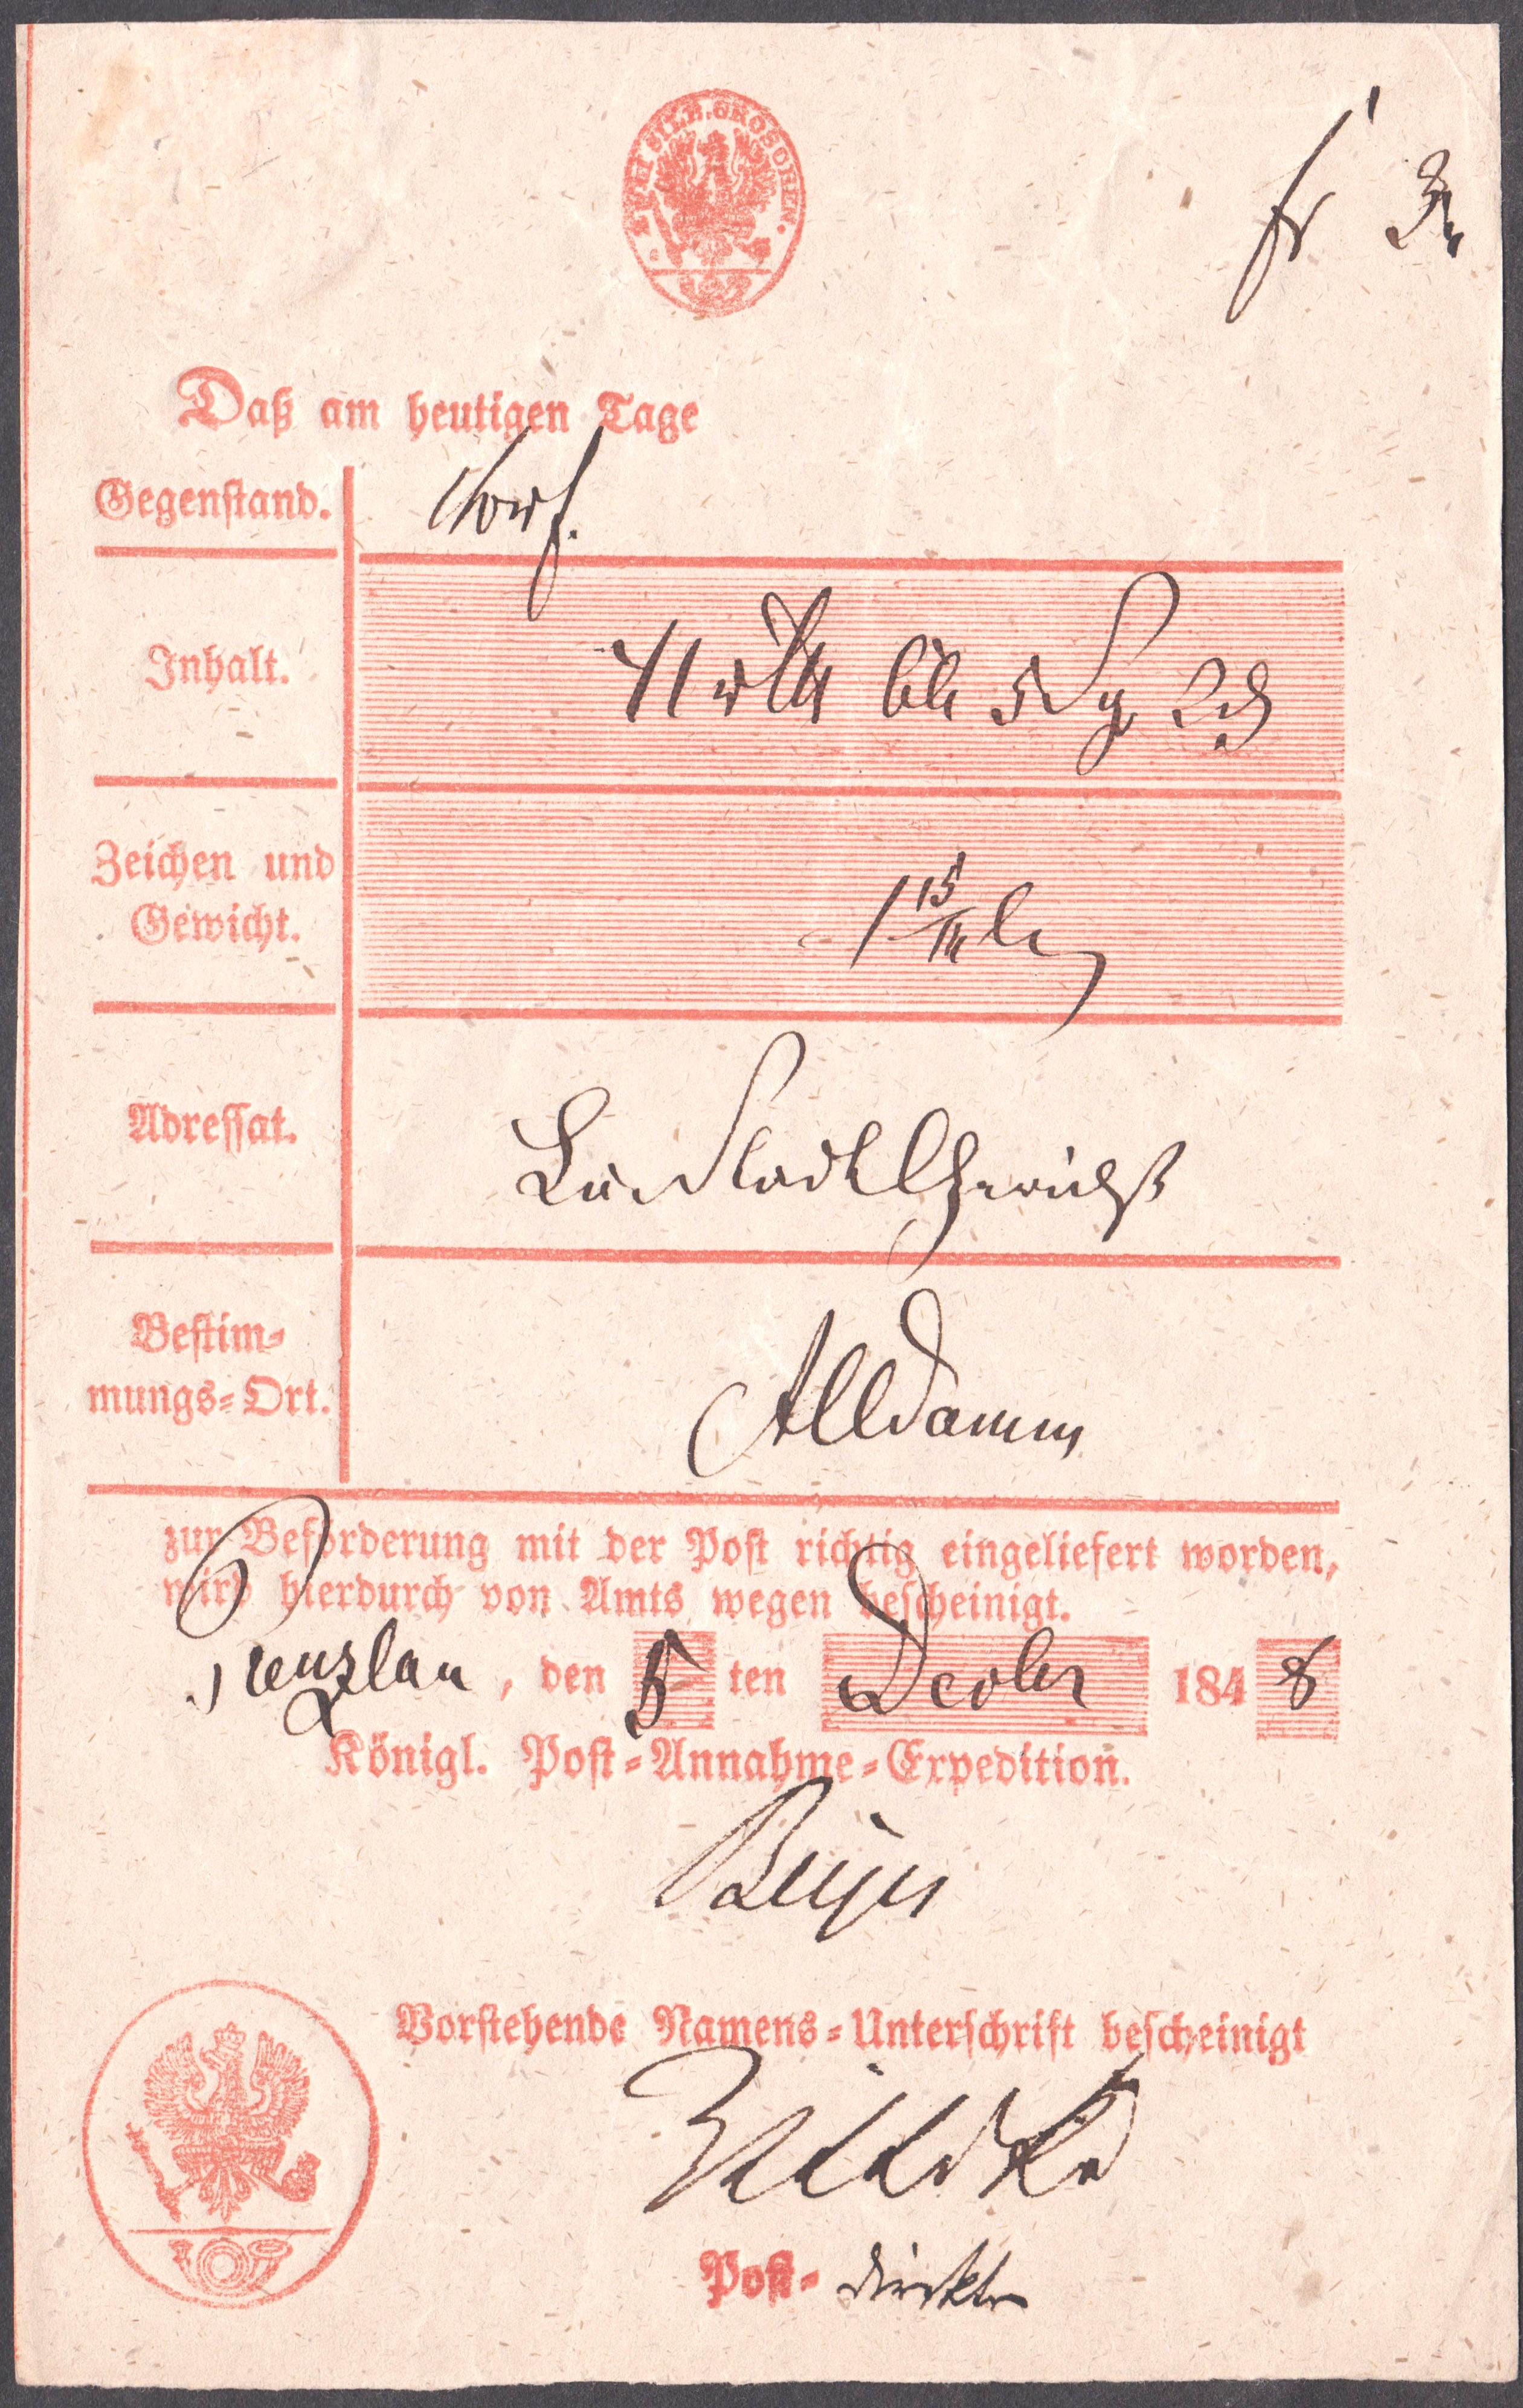 ZWEI SILB. GROSCHEN.
fr
Daß am heutigen Tage
Gegenstand.
Inhalt.
Zeichen und
Gewicht.
1 15/16
Adressat.
Stadt Gericht
Bestim-
mungs-Ort.
Altdamm
zur Beförderung mit der Post richtig eingeliefert worden,
wird hierdurch von Amts wegen bescheinigt.
Prenzlau, den 5 ten Decbr 1848
Königl. Post-Annahme-Expedition.
Vorstehende Namens-Unterschrift bescheinigt
Post-direktor